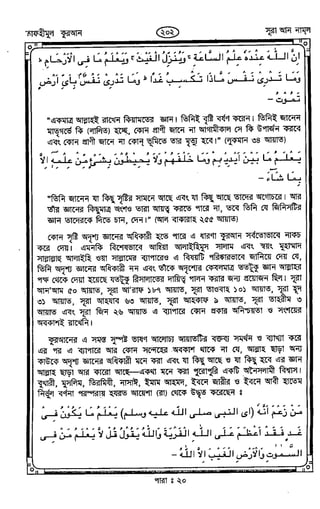 তাফহীমুল কুরআন ২০২ সূরা আন নামল
اِنَّ اللّٰهَ عِنْدَهٗ عِلْمُ السَّاعَةِ ۚ وَيُنَزِّلُ الْغَيْثَ ۚ وَيَعْلَمُ مَا فِى الْاَرْحَامِ ؕ
وَمَا تَدْرِىْ نَفْسٌ مَّاذَا تَكْسِبُ غَدًا ؕ وَمَا تَدْرِىْ نَفْسٌۢ بِاَىِّ اَرْضٍ
تَمُوْتُ -
"একমাত্র আল্লাহই রাখেন কিয়ামতের জ্ঞান। তিনিই বৃষ্টি বর্ষণ করেন। তিনিই জানেন
মাতৃগর্ভে কি (লালিত) হচ্ছে, কোন প্রাণী জানে না আগামীকাল সে কি উপার্জন করবে
এবং কোন প্রাণী জানে না কোন্ ভূমিতে তার মৃত্যু হবে।" (লুকমান ৩৪ আয়াত)
يَعْلَمُ مَا بَيْنَ اَيْدِيْهِمْ وَمَا خَلْفَهُمْ وَلَا يُحِيْطُوْنَ بِشَىْءٍ مِّنْ عِلْمِهٖۤ اِلَّا
بِمَا شَآءَ -
"তিনি জানেন যা কিছু সৃষ্টির সামনে আছে এবং যা কিছু আছে তাদের অগোচরে। আর
তাঁর জ্ঞানের কিছুমাত্র অংশও তারা আয়ত্ব করতে পারে না, তবে তিনি যে জিনিসটির
জ্ঞান তাদেরকে দিতে চান, দেন।" (আল বাকারাহ ২৫৫ আয়াত)
কোন সৃষ্টি অদৃশ্য জ্ঞানের অধিকারী হতে পারে এ ধারণা কুরআন সর্বতোভাবে নাকচ
করে দেয়। এমনকি বিশেষভাবে আম্বিয়া আলাইহিমুস সালাম এবং স্বয়ং মুহাম্মাদ
সাল্লাল্লাহু আলাইহি ওয়া সাল্লামের ব্যাপারেও এ বিষয়টি পরিষ্কারভাবে জানিয়ে দেয় যে,
তিনি অদৃশ্য জ্ঞানের অধিকারী নন এবং তাঁকে অদৃশ্যের কেবলমাত্র ততটুকু জ্ঞান আল্লাহর
পক্ষ থেকে দেয়া হয়েছে যতটুকু রিসালাতের দায়িত্ব পালন করার জন্য প্রয়োজন ছিল। সূরা
আন'আম ৫০ আয়াত, সূরা আ'রাফ ১৮৭ আয়াত, সূরা তাওবাহ ১০১ আয়াত, সূরা হূদ
৩১ আয়াত, সূরা আহযাব ৬৩ আয়াত, সূরা আহকাফ ৯ আয়াত, সূরা তাহরীম ৩
আয়াত এবং সূরা জিন ২৬ আয়াত এ ব্যাপারে কোন প্রকার অনিশ্চয়তা ও সংশয়ের
অবকাশই রাখেনি।
কুরআনের এ সমস্ত সুস্পষ্ট ভাষণ আলোচ্য আয়াতটির বক্তব্য সমর্থন ও ব্যাখ্যা করে
এর পর এ ব্যাপারে আর কোন সন্দেহের অবকাশ থাকে না যে, আল্লাহ ছাড়া অন্য
কাউকে অদৃশ্য জ্ঞানের অধিকারী মনে করা এবং যা কিছু আছে ও যা কিছু হবে এর জ্ঞান
আল্লাহ ছাড়া আর কারো আছে—একথা মনে করা পুরোপুরি একটি অনৈসলামী বিশ্বাস।
বুখারী, মুসলিম, তিরমিযী, নাসাঈ, ইমাম আহমদ, ইবনে জারীর ও ইবনে আবী হাতেম
নির্ভুল বর্ণনা পরম্পরায় হযরত আয়েশা (রা) থেকে উদ্ধৃত করেছেন ঃ
مَنْ زَعَمَ اَنَّهٗ (اى النبى صلى الله عليه وسلم) يَعْلَمُ مَا يَكُوْنُ فِىْ
غَدٍ فَقَدْ اَعْظَمَ عَلَى اللّٰهِ الْفِرْيَةَ وَاللّٰهُ يَقُوْلُ قُلْ لَّا يَعْلَمُ مَنْ فِى
السَّمٰوٰتِ وَالْاَرْضِ الْغَيْبَ اِلَّا اللّٰهُ -
পারা ঃ ২০